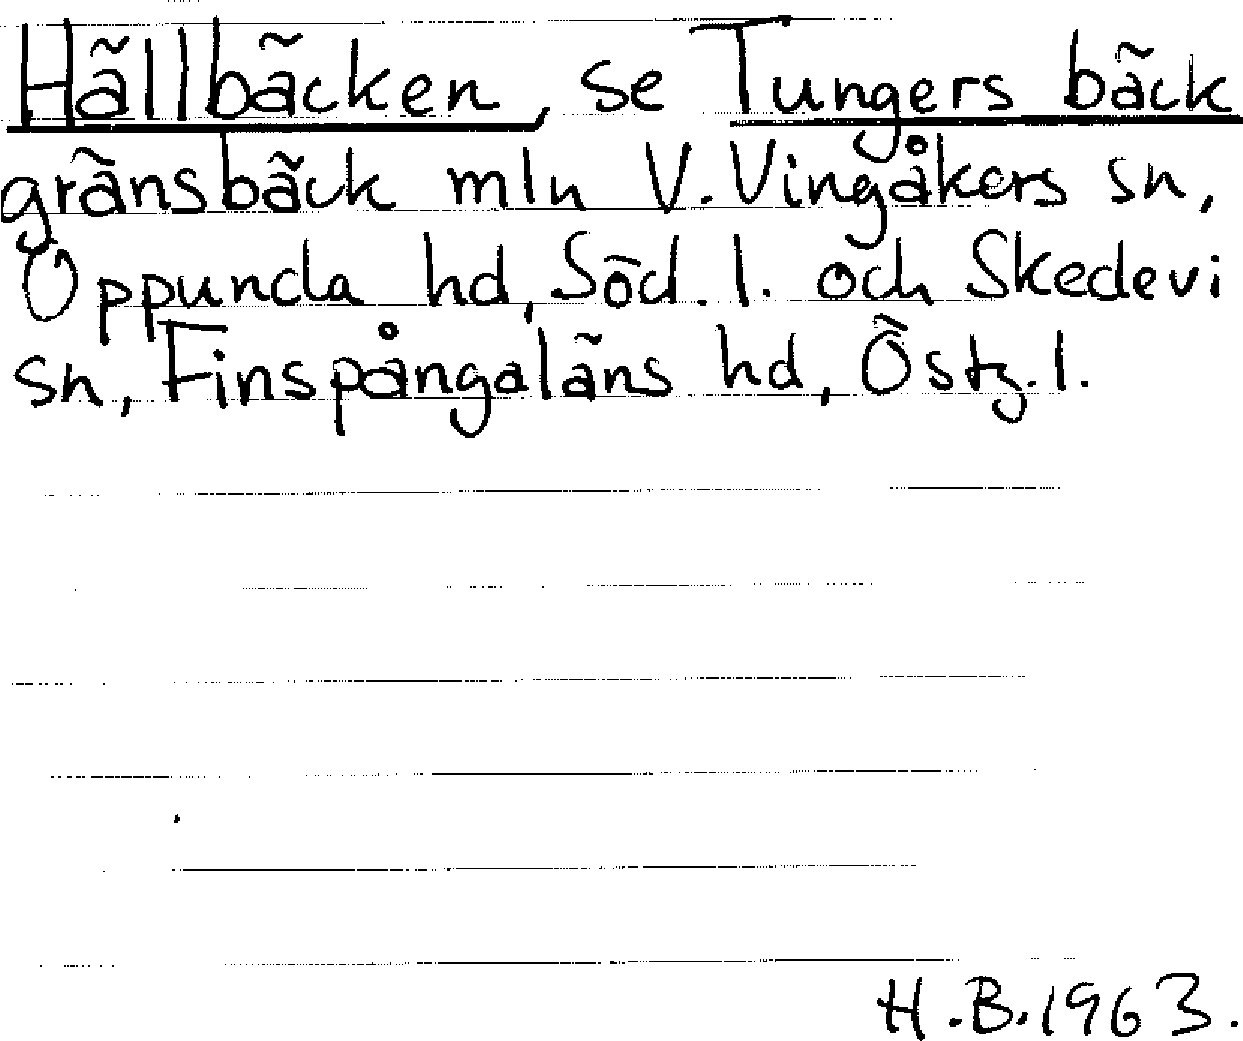 Hällbäcken, se Tungers bäck
gränsbäck mln V. Vingåkers sn,
Oppunda hd, Söd. l. och Skedevi
sn, Finspångaläns hd, Östg. l.
H.B. 1963.